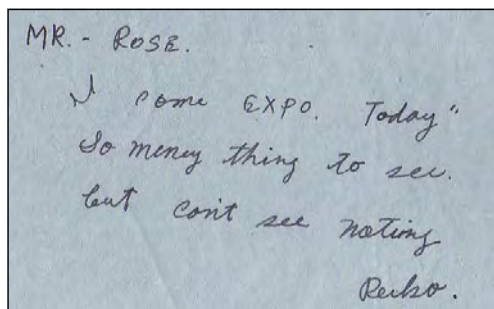 MR. - ROSE.
I come EXPO. Today"
So meney thing to see.
but con't see noting
Reiko.